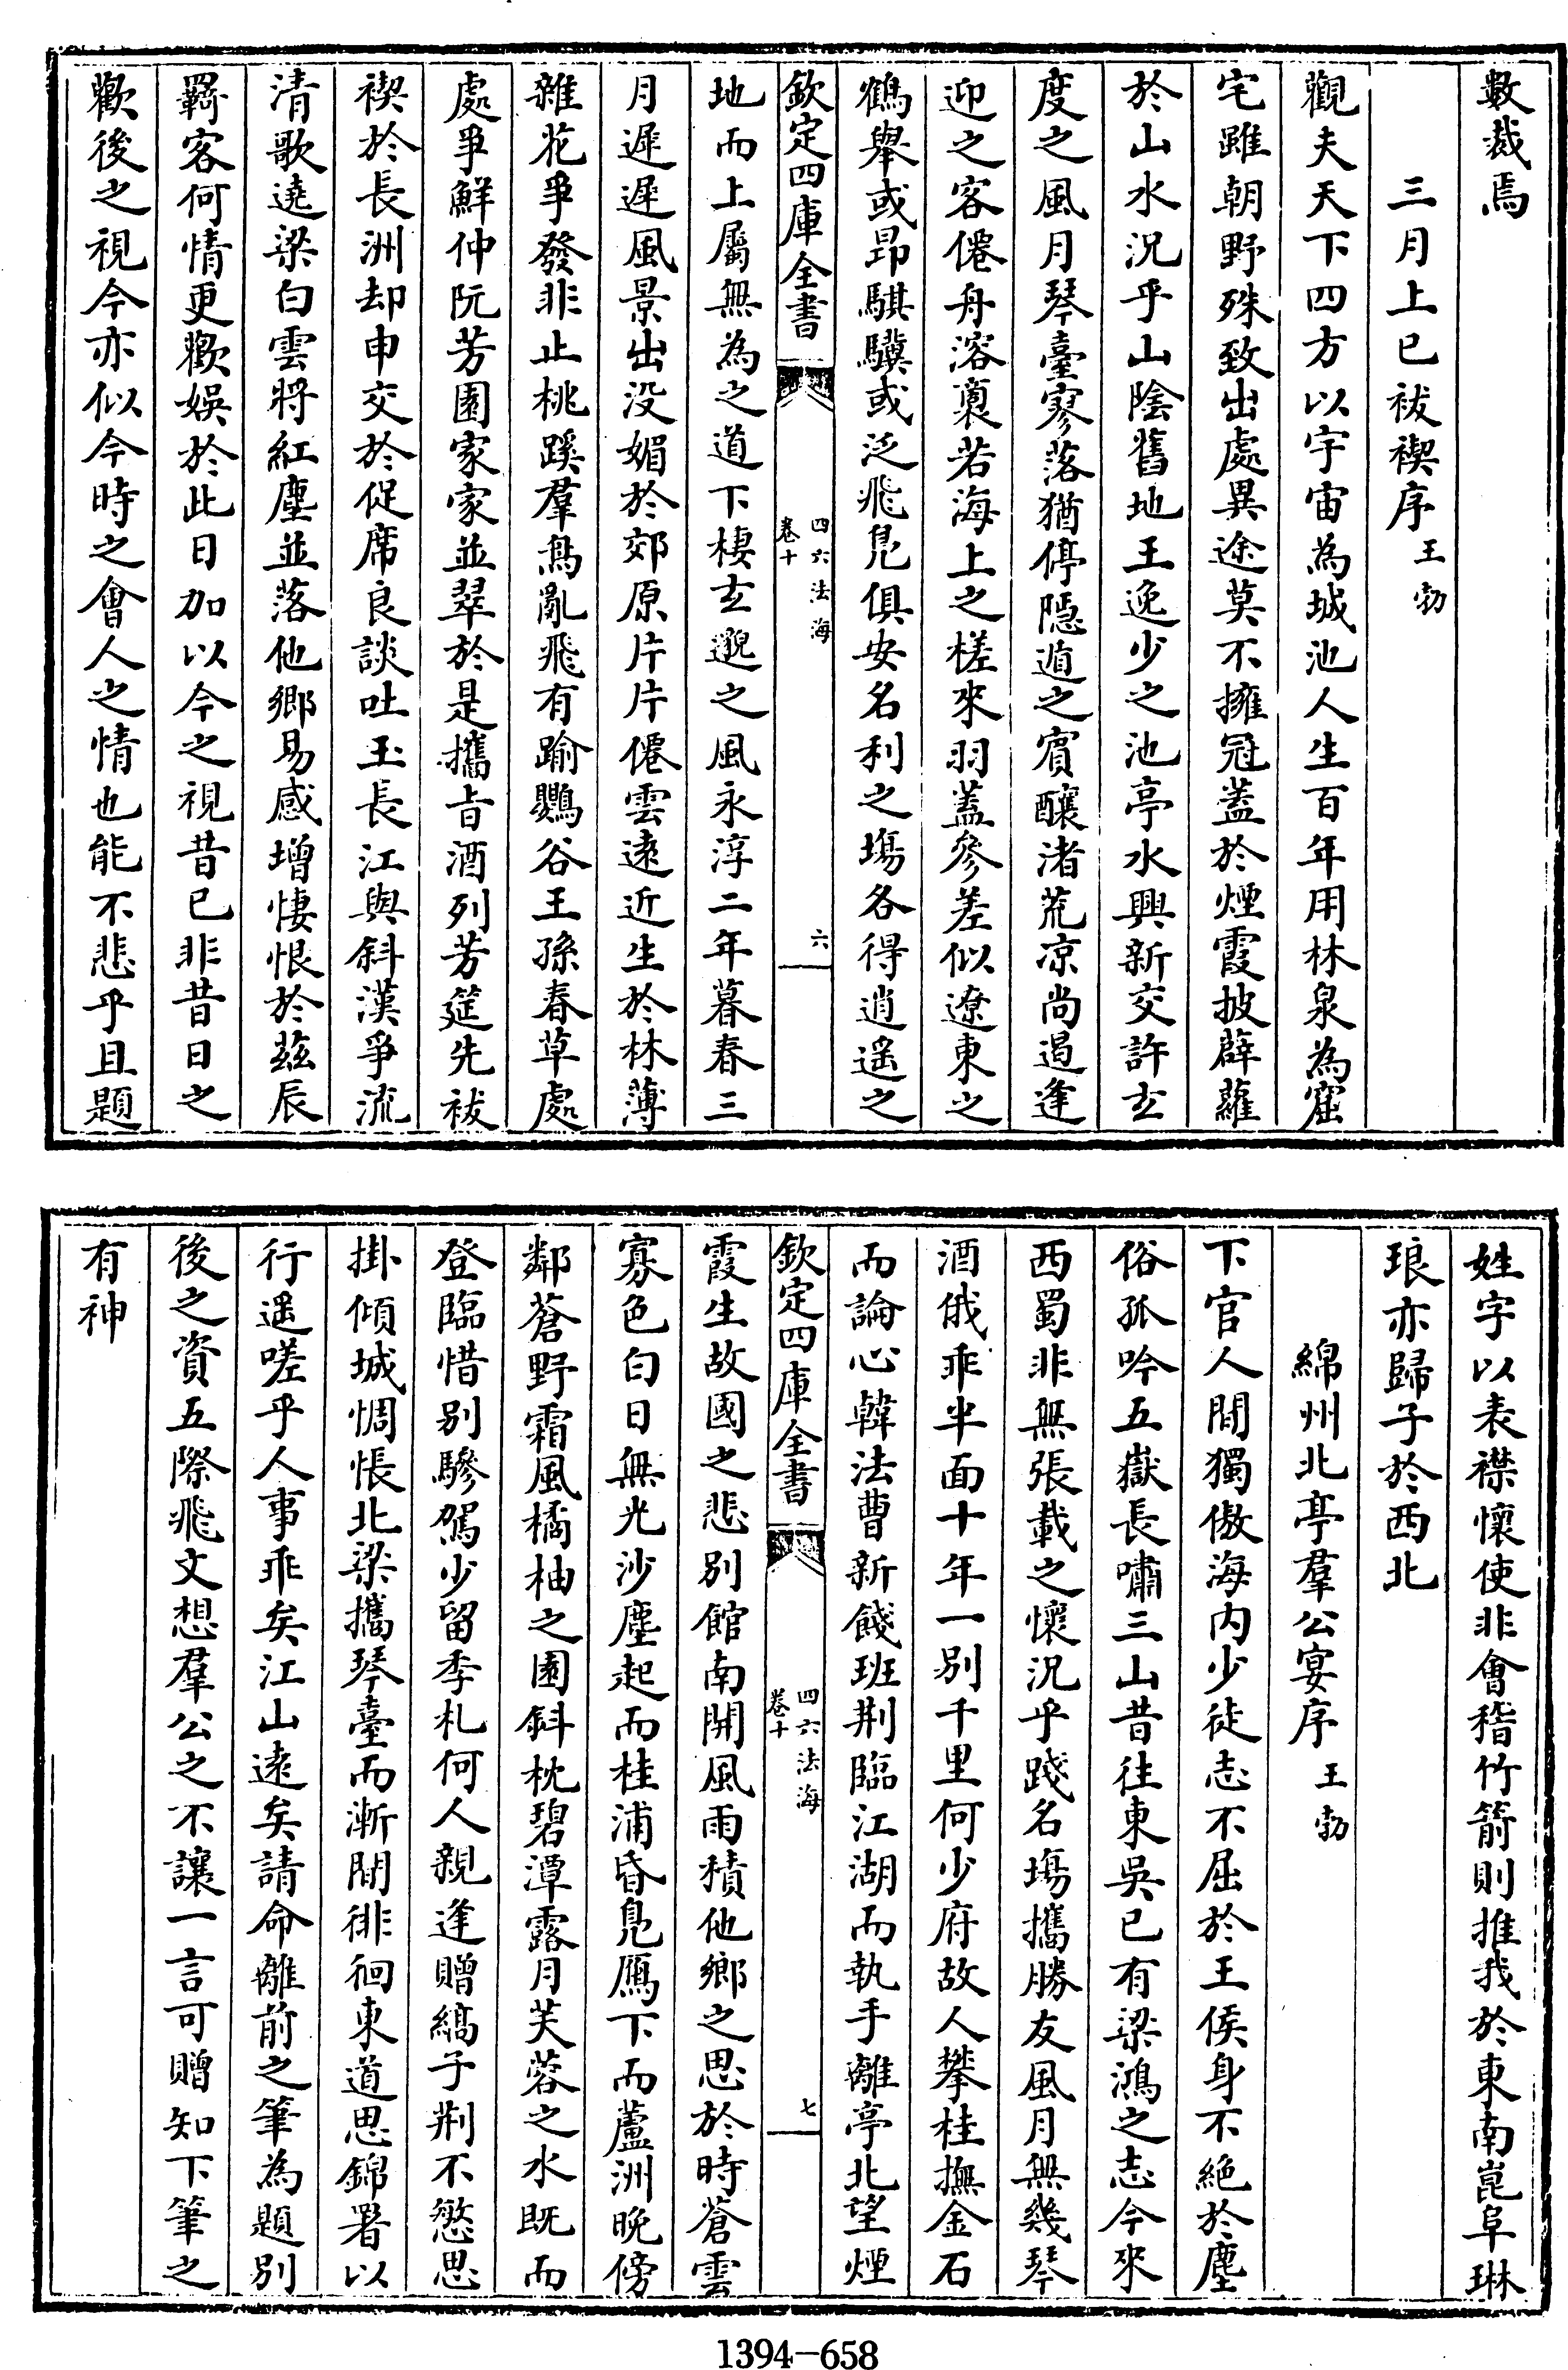 數裁焉
三月上巳祓禊序王勃
觀夫天下四方以宇宙為城池人生百年用林泉為窟
宅雖朝野殊致出處異途莫不擁冠蓋於煙霞披薜蘿
於山水況乎山陰舊地王逸少之池亭水興新交許玄
度之風月琴臺寥落猶停隱遁之賓釀渚荒凉尚遏逢
迎之客僊舟溶裔若海上之槎來羽蓋參差似遼東之
鶴舉或昂騏驥或泛飛鳧俱安名利之塲各得逍遥之
欽定四庫全書
四六法海
卷十
六
地而上屬無為之道下棲玄邈之風永淳二年暮春三
月遲遲風景出没媚於郊原片片僊雲遠近生於林薄
雜花爭發非止桃蹊羣鳥亂飛有踰鸎谷王孫春草處
處爭鮮仲阮芳園家家並翠於是攜旨酒列芳筵先祓
禊於長洲却申交於促席良談吐玉長江與斜漢爭流
清歌遶梁白雲將紅塵並落他鄉易感增悽恨於茲辰
羇客何情更歡娛於此日加以今之視昔已非昔日之
歡後之視今亦似今時之會人之情也能不悲乎且題
姓字以表襟懷使非會稽竹箭則推我於東南崑阜琳
琅亦歸予於西北
綿州北亭羣公宴序王勃
下官人間獨傲海内少徒志不屈於王侯身不絶於塵
俗孤吟五嶽長嘯三山昔往東吳已有梁鴻之志今來
西蜀非無張載之懷況乎踐名塲攜勝友風月無幾琴
酒俄乖半面十年一別千里何少府故人攀桂撫金石
而論心韓法曹新餞班荆臨江湖而執手離亭北望煙
欽定四庫全書
四六法海
卷十
七
霞生故國之悲別館南開風雨積他鄉之思於時蒼雲
寡色白日無光沙塵起而桂浦昏鳧鴈下而蘆洲晚傍
鄰蒼野霜風橘柚之園斜枕碧潭露月芙蓉之水既而
登臨惜別驂駕少留季札何人親逢贈縞子荆不慗思
掛傾城惆悵北梁攜琴臺而漸間徘徊東道思錦署以
行遥嗟乎人事乖矣江山遠矣請命離前之筆為題別
後之資五際飛文想羣公之不讓一言可贈知下筆之
有神
1394—658